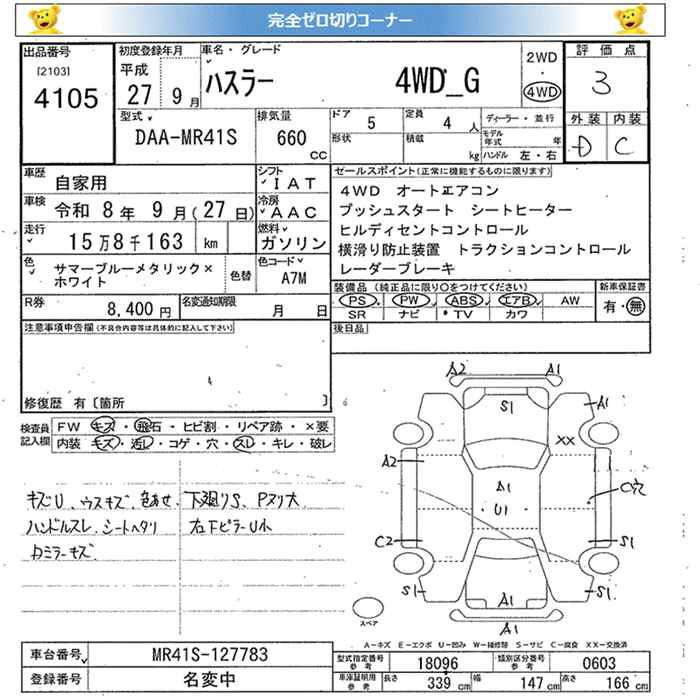 完全ゼロ切りコーナー
出品番号
[2103]
4105
初度登録年月
平成
27 9月
車名・グレード
ハスラー 4WD_G
2WD
・
4WD
評価点
3
外装 内装
D C
型式
DAA-MR41S
排気量
660
CC
ドア 5
定員 4 人
ディーラー・並行
形状
積載 kg
モデル年式 年
ハンドル 左・右
車歴
自家用
シフト
IAT
車検
令和 8年 9月(27日)
冷房
AAC
走行
15万8千163 km
燃料
ガソリン
色
サマーブルーメタリック×
ホワイト
色替
色コード
A7M
R券
8,400円
名変通知期限
月 日
セールスポイント(正常に機能するものに限ります)
4WD オートエアコン
プッシュスタート シートヒーター
ヒルディセントコントロール
横滑り防止装置 トラクションコントロール
レーダーブレーキ
装備品(純正品に限り○をつけてください)
PS PW ABS エアB AW
SR ナビ TV カワ
新車保証書
有・無
後日品
注意事項申告欄(不具合内容等は具体的に記入して下さい)
修復歴 有〔箇所 〕
検査員
記入欄
FW キズ・飛石・ヒビ割・リペア跡・×要
内装 キズ・汚レ・コゲ・穴・スレ・キレ・破レ
キズU、ウスキズ、色あせ、下廻りS、Pヌリ大
ハンドルスレ、シートヘタリ 右下ピラーU小
カミラーキズ
A2 A1
S1 A1
XX
A2
A1
U1
C穴
C2 S1
S1 A1 S1
A1
スペア
A-キズ E-エクボ U-凹み W-補修跡 S-サビ C-腐食 XX-交換済
車台番号
MR41S-127783
登録番号
名変中
型式指定番号
参考
18096
類別区分番号
参考
0603
車庫証明用
参考
長さ 339 cm
幅 147 cm
高さ 166 cm